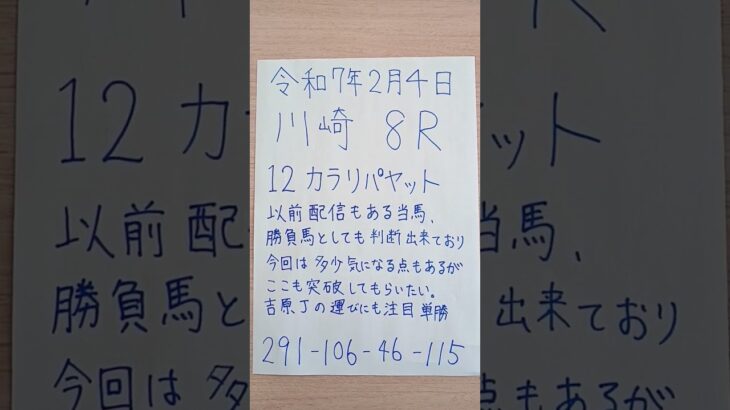 令和7年2月4日
川崎 8R
12 カラリパヤット
以前配信もある当馬、
勝負馬としても判断出来ており
今回は多少気になる点もあるが
ここも突破してもらいたい。
吉原丁の運びにも注目単勝
291-106-46-115